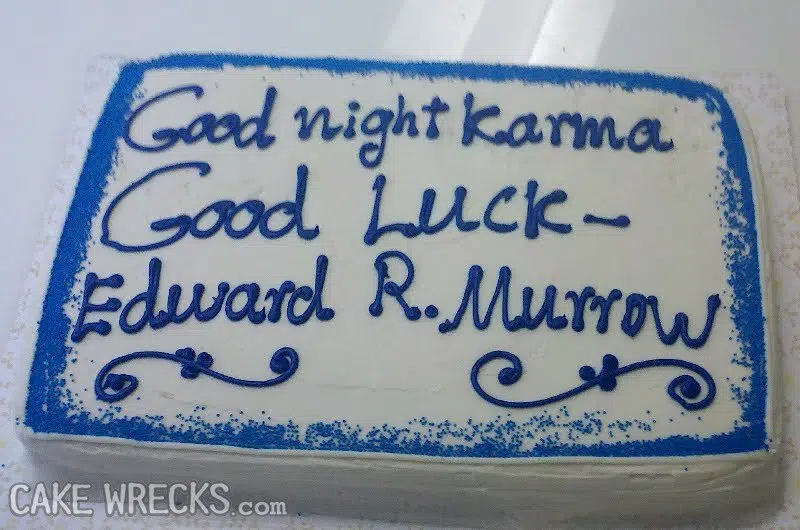 Good night Karma
Good Luck-
Edward R. Murrow
CAKE WRECKS.com